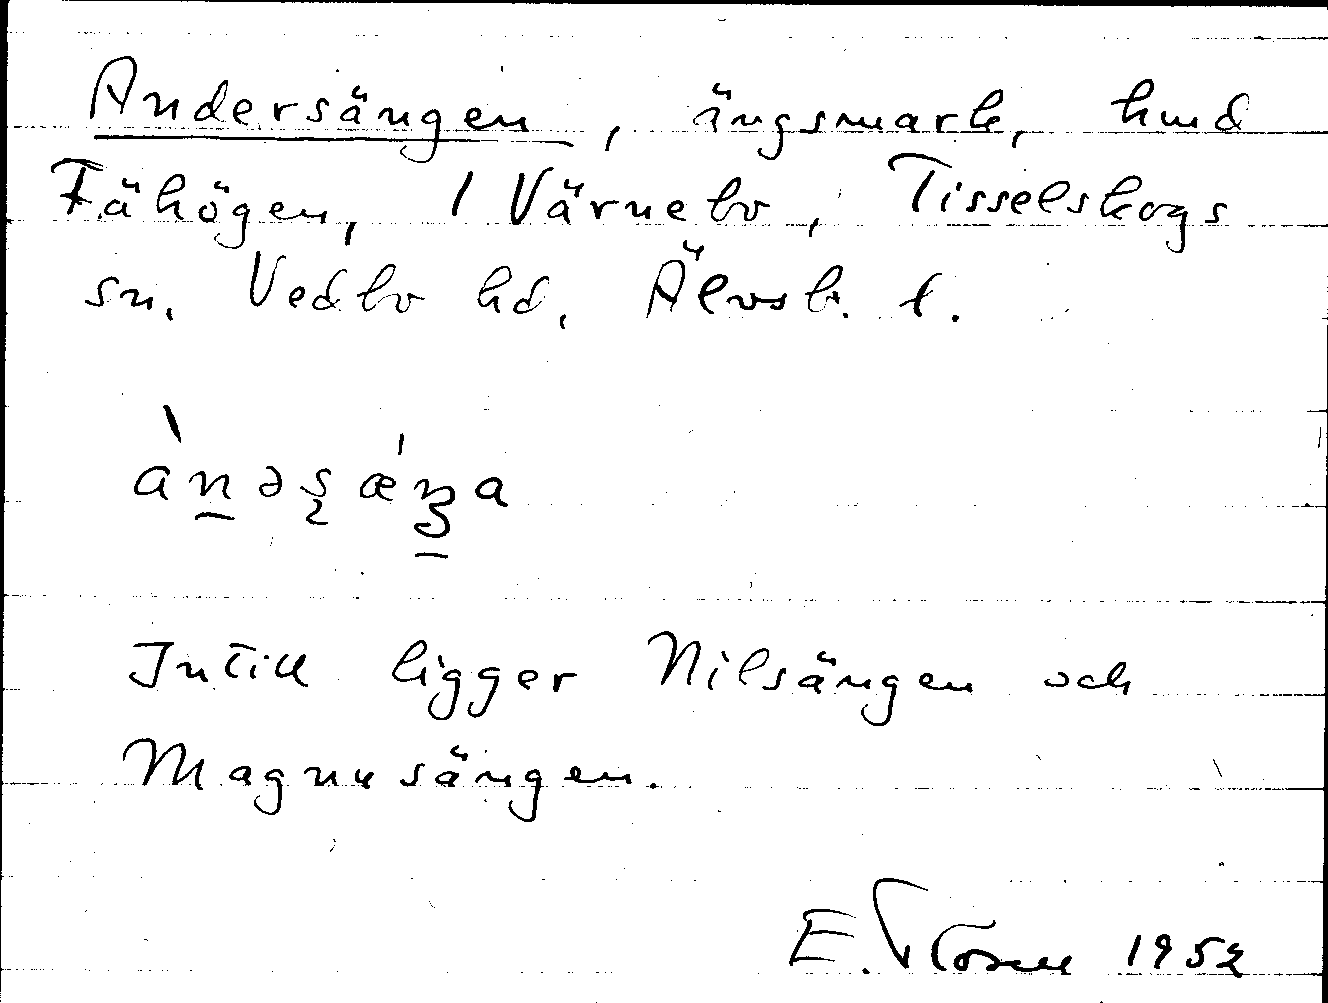 Andersängen, ängsmark, hmd
Fähögen, 1 Värnebo, Tisselskogs
sn. Vedbo hd, Älvsb. l.
Intill ligger Nilsängen och
Magnusängen.
E. 1952